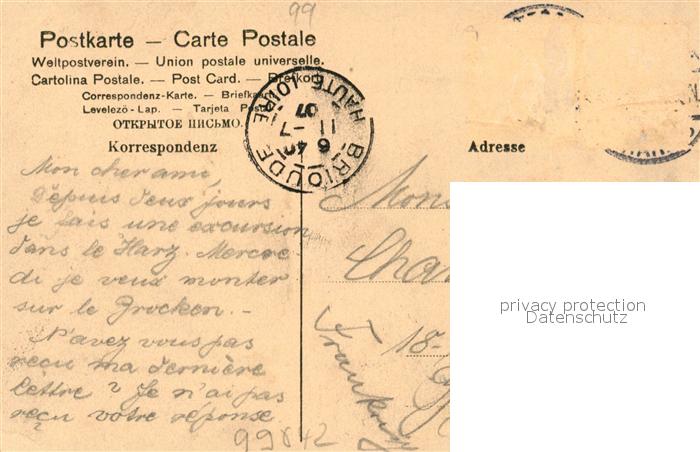 99
Postkarte — Carte Postale
Weltpostverein. — Union postale universelle.
Cartolina Postale. — Post Card. — Brefkort
Correspondenz-Karte. — Briefkaart
Levelező-Lap. — Tarjeta Postal
ОТКРЫТОЕ ПИСЬМО.
Korrespondenz
BRIOUDE
HAUTE-LOIRE
6 40
11 -7
07
Adresse
Mon cher ami,
Depuis deux jours
je fais une excursion
dans le Harz. Mercre
di je veux monter
sur le Brocken. -
N'avez vous pas
reçu ma dernière
lettre? Je n'ai pas
reçu votre réponse.
99842
Mons
Cha
18-
privacy protection
Datenschutz